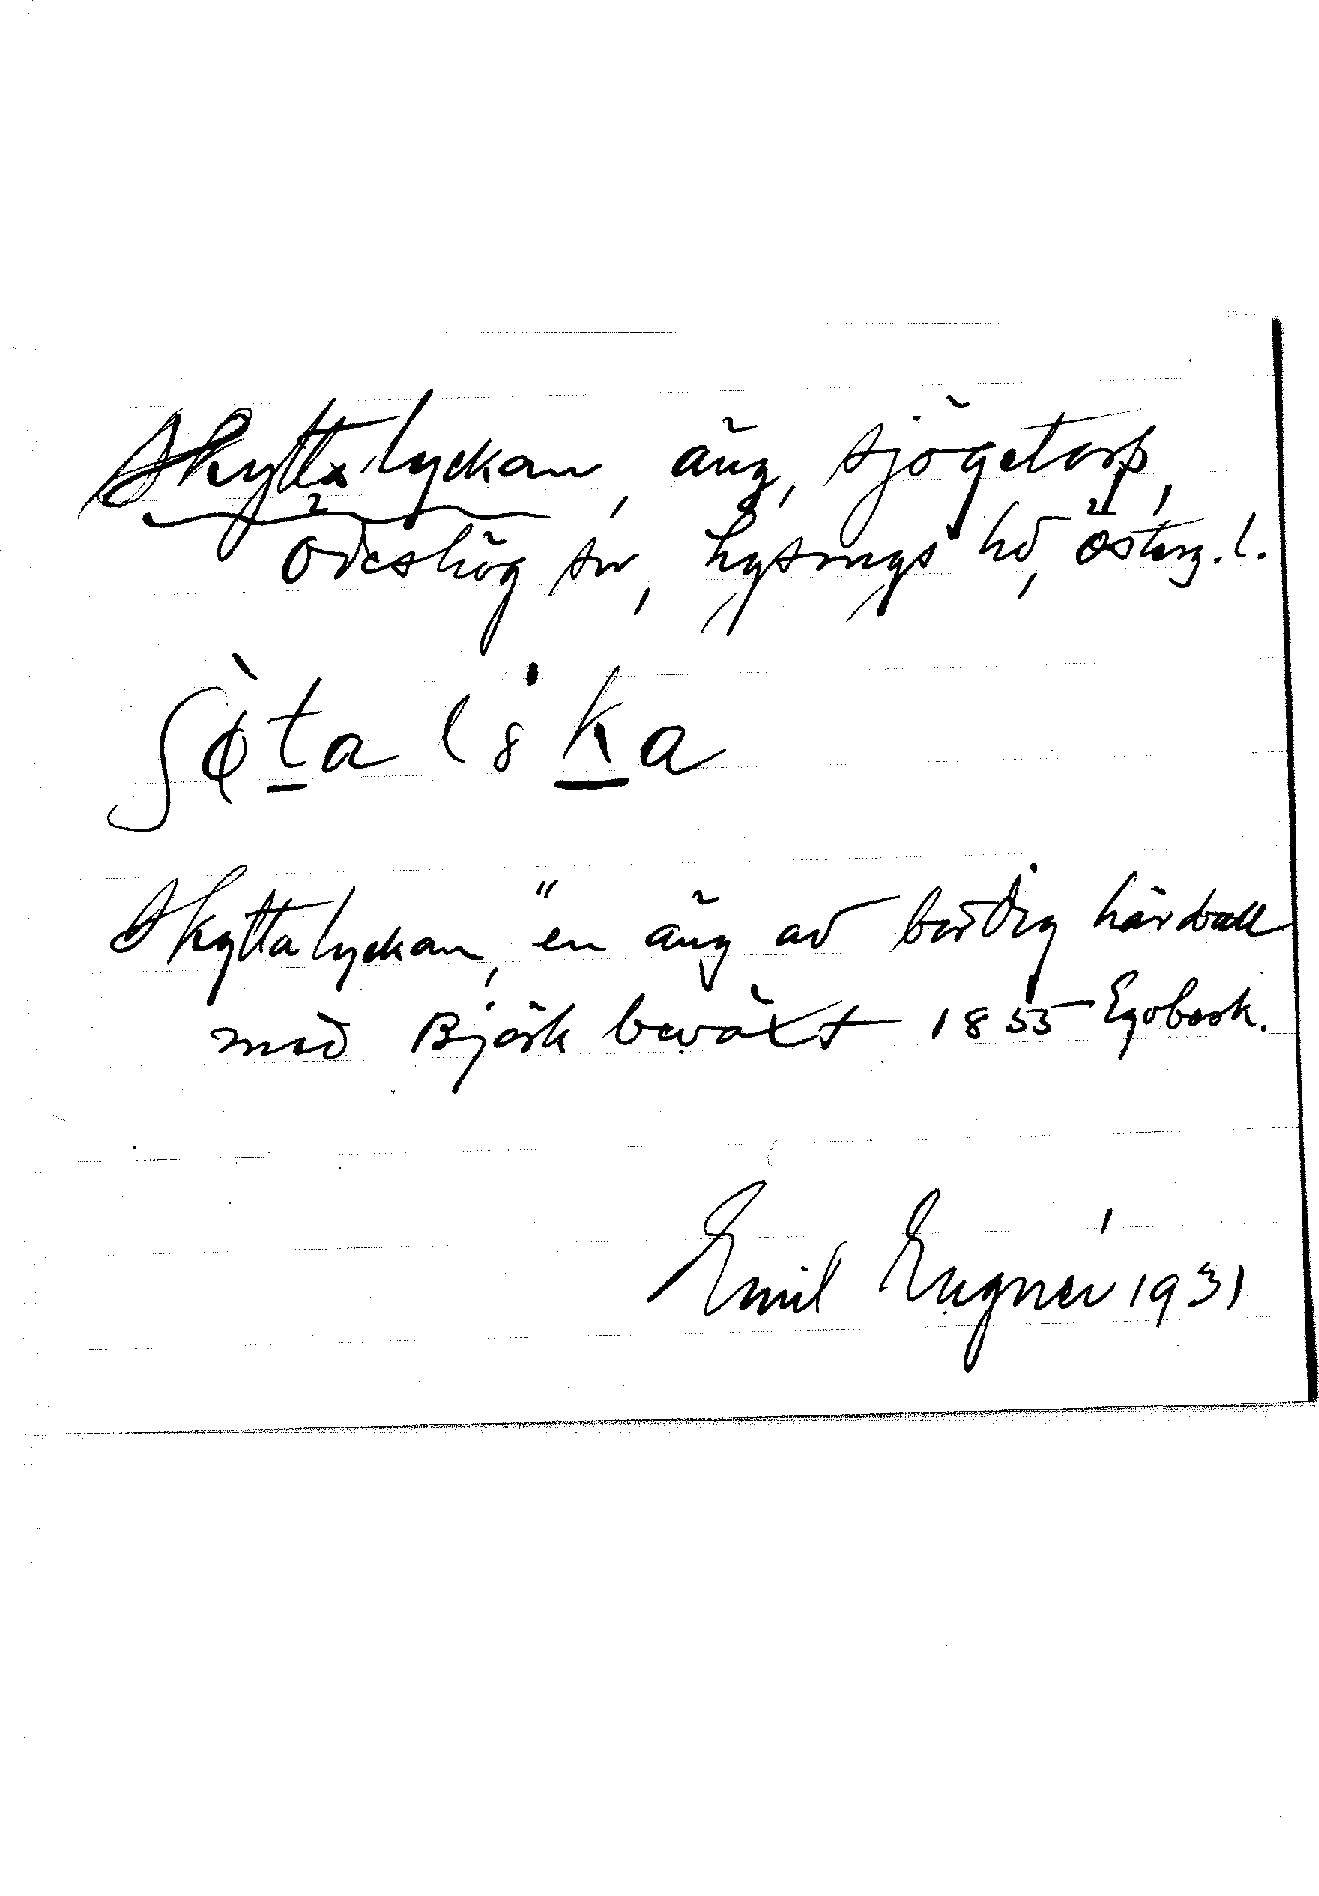 Skyttalyckan, äng, Sjögetorp,
Ödeshög sn, Lysings hd, Österg. l.
ʃø̀ta lɞka
Skyttalyckan, "en äng av bördig hårdvall
med Björk beväxt 1855 Egobesk.
Emil Eugner 1931